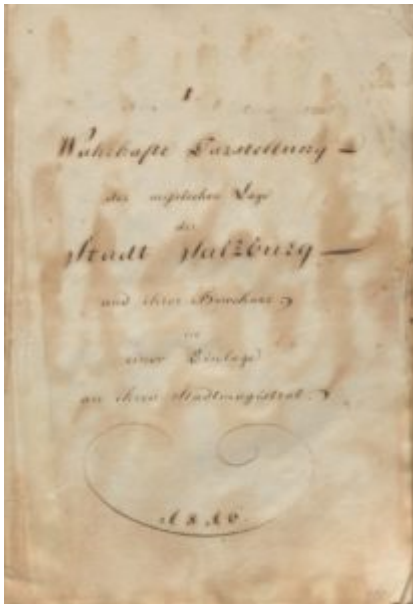 1.
Wahrhafte Darstellung
der mißlichen Lage
der
Stadt Salzburg
und ihrer Bewohner
in
einer Beilage
an ihren Stadtmagistrat.